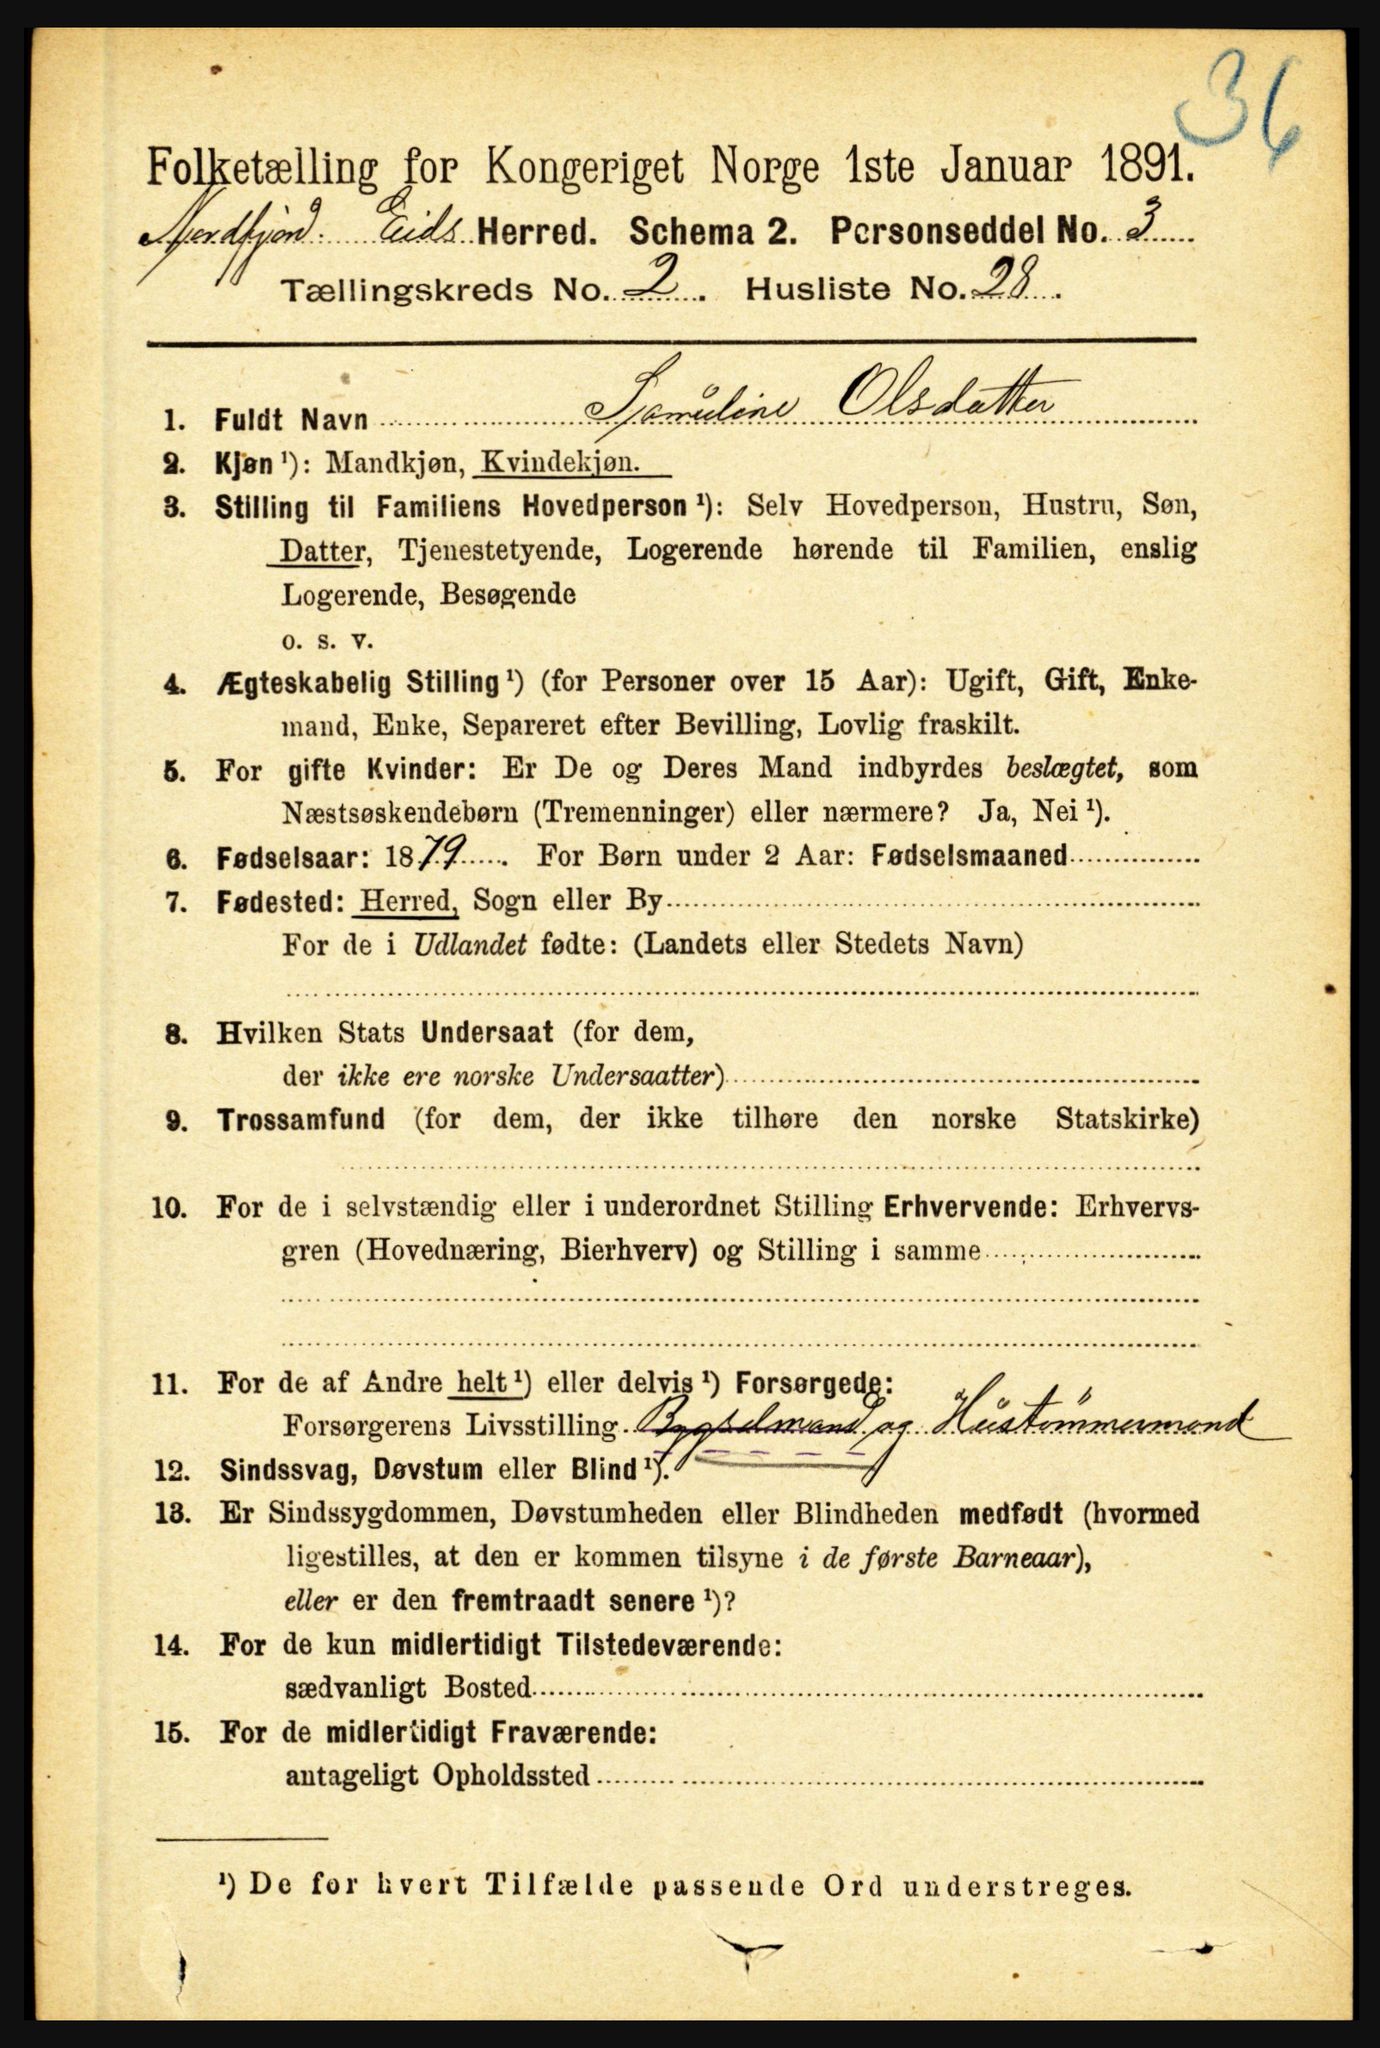 36
Folketælling for Kongeriget Norge 1ste Januar 1891.
Nordfjord. Eids Herred. Schema 2. Personseddel No. 3
Tællingskreds No. 2. Husliste No. 28.
1. Fuldt Navn Samuline Olsdatter
2. Kjøn ¹): Mandkjøn, Kvindekjøn.
3. Stilling til Familiens Hovedperson ¹): Selv Hovedperson, Hustru, Søn,
Datter, Tjenestetyende, Logerende hørende til Familien, enslig
Logerende, Besøgende
o. s. v.
4. Ægteskabelig Stilling ¹) (for Personer over 15 Aar): Ugift, Gift, Enke-
mand, Enke, Separeret efter Bevilling, Lovlig fraskilt.
5. For gifte Kvinder: Er De og Deres Mand indbyrdes beslægtet, som
Næstsøskendebørn (Tremenninger) eller nærmere? Ja, Nei ¹).
6. Fødselsaar: 1879. For Børn under 2 Aar: Fødselsmaaned
7. Fødested: Herred, Sogn eller By
For de i Udlandet fødte: (Landets eller Stedets Navn)
8. Hvilken Stats Undersaat (for dem,
der ikke ere norske Undersaatter)
9. Trossamfund (for dem, der ikke tilhøre den norske Statskirke)
10. For de i selvstændig eller i underordnet Stilling Erhvervende: Erhvervs-
gren (Hovednæring, Bierhverv) og Stilling i samme
11. For de af Andre helt ¹) eller delvis ¹) Forsørgede:
Forsørgerens Livsstilling Bygselmand og Hustømmermand
12. Sindssvag, Døvstum eller Blind ¹).
13. Er Sindssygdommen, Døvstumheden eller Blindheden medfødt (hvormed
ligestilles, at den er kommen tilsyne i de første Barneaar),
eller er den fremtraadt senere ¹)?
14. For de kun midlertidigt Tilstedeværende:
sædvanligt Bosted
15. For de midlertidigt Fraværende:
antageligt Opholdssted
¹) De for hvert Tilfælde passende Ord understreges.